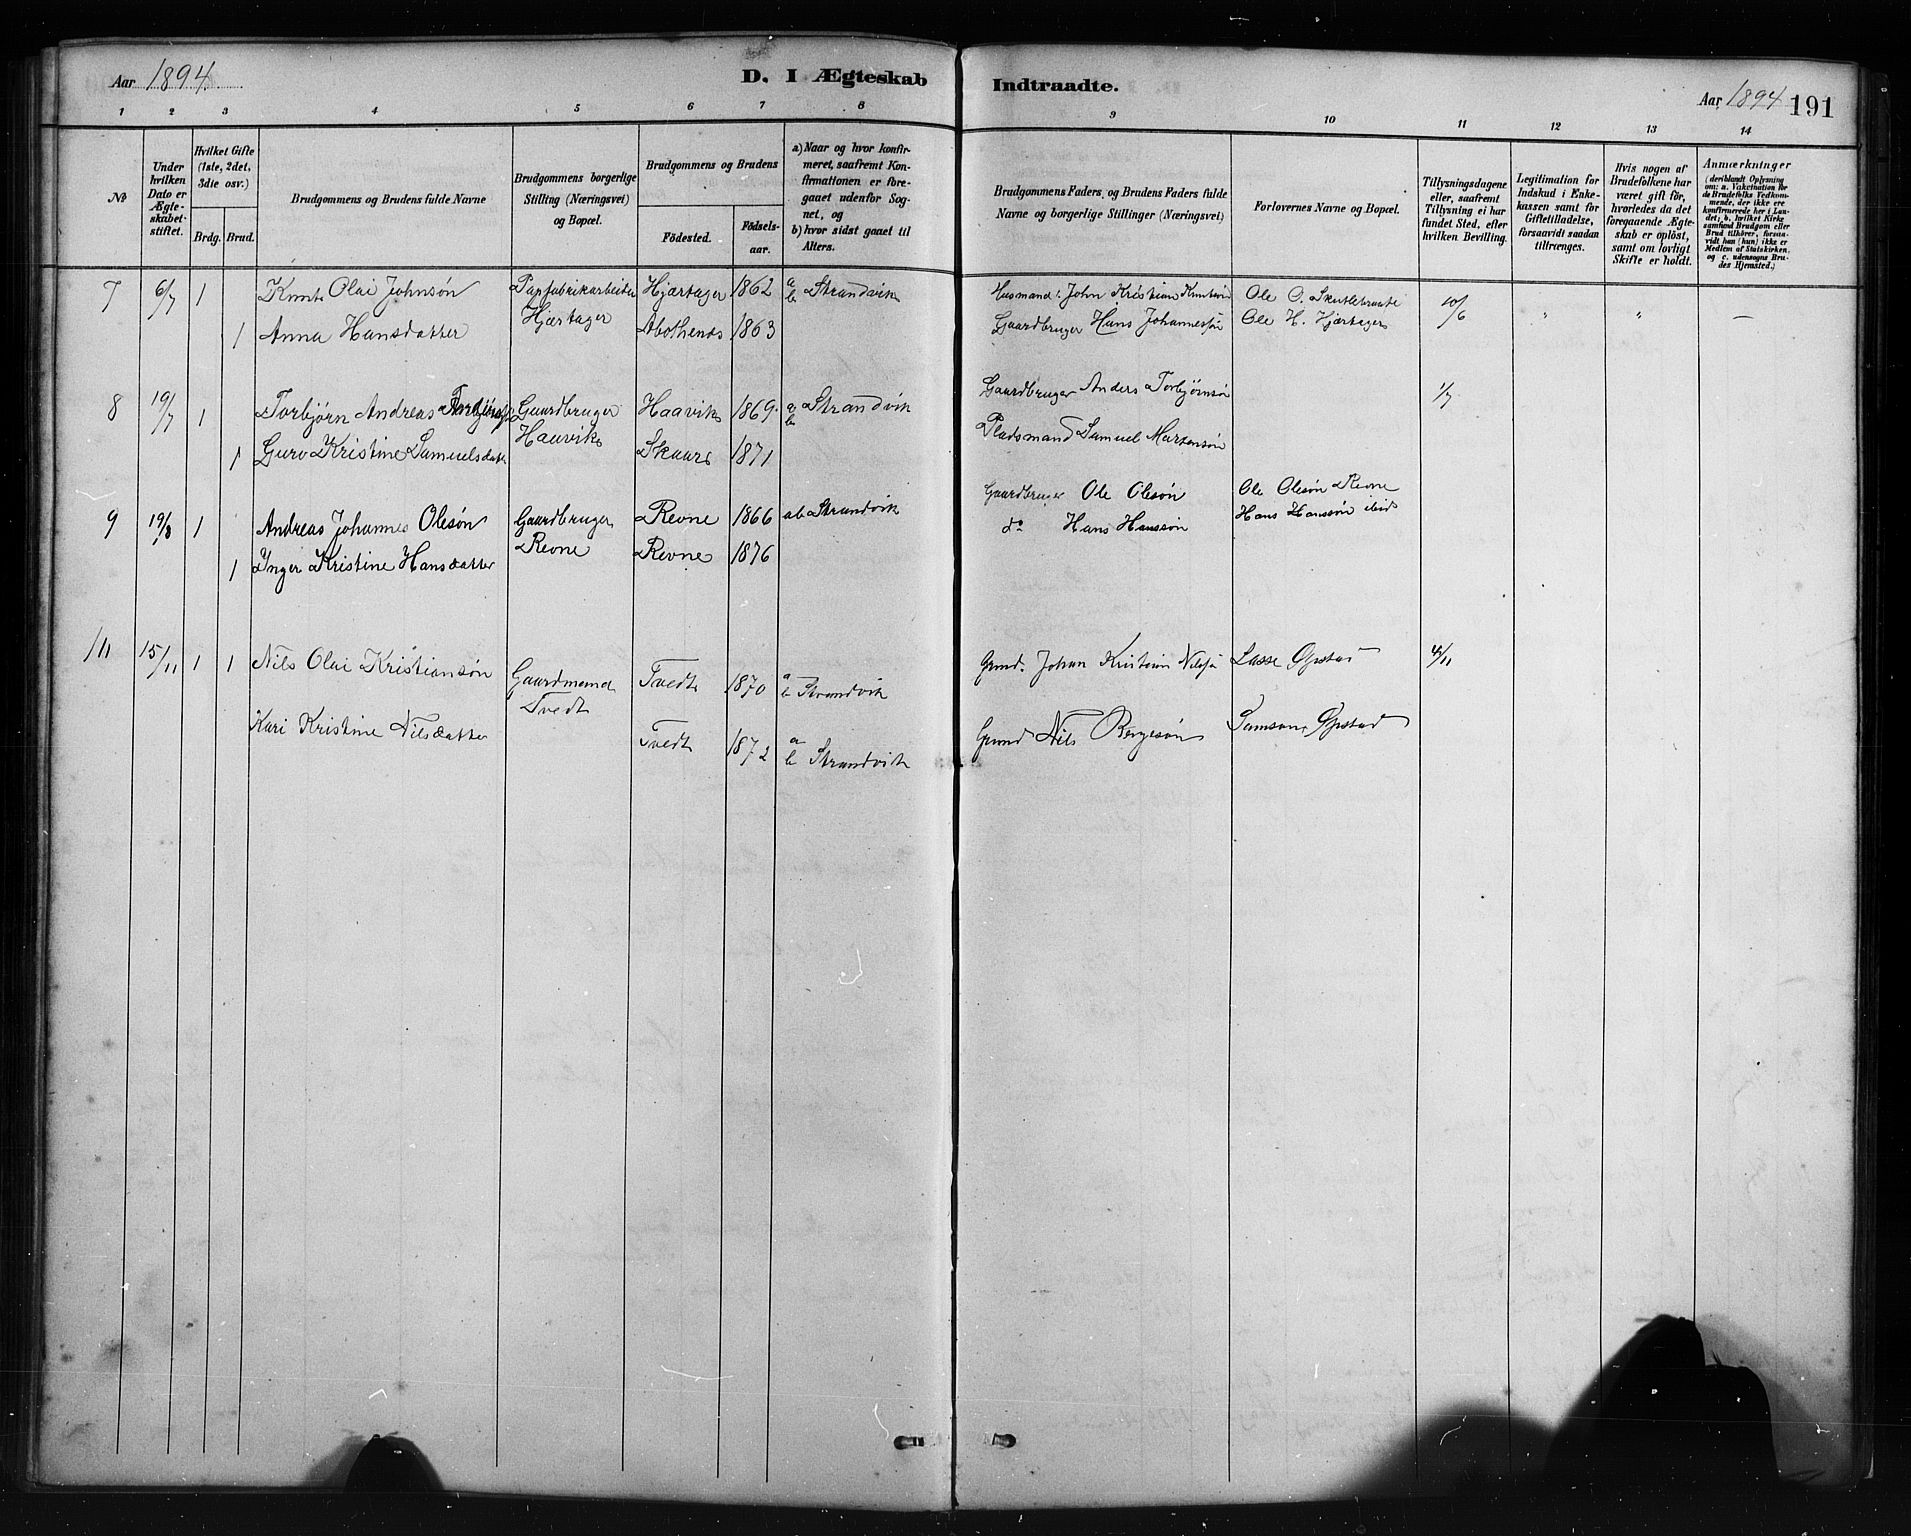 Aar 1894.
D. I Ægteskab
Indtraadte.
Aar 1894 191
1 2 3 4 5 6 7 8 9 10 11 12 13 14
№
Under hvilken Dato er Ægteskabet stiftet.
Hvilket Gifte (1ste, 2det, 3die osv.)
Brdg. Brud.
Brudgommens og Brudens fulde Navne
Brudgommens borgerlige Stilling (Næringsvei) og Bopæl.
Brudgommens og Brudens
Födested. Födselsaar.
a) Naar og hvor konfirmeret, saafremt Konfirmationen er foregaaet udenfor Sognet, og
b) hvor sidst gaaet til Alters.
Brudgommens Faders, og Brudens Faders fulde Navne og borgerlige Stillinger (Næringsvei)
Forlovernes Navne og Bopæl.
Tillysningsdagene eller, saafremt Tillysning ei har fundet Sted, efter hvilken Bevilling.
Legitimation for Indskud i Enkekassen samt for Giftetilladelse, forsaavidt saadan tiltrænges.
Hvis nogen af Brudefolkene har været gift før, hvorledes da det foregaaende Ægteskab er oplöst, samt om lovligt Skifte er holdt.
Anmærkninger (deriblandt Oplysning om: a. Vakcination for de Brudefolks Vedkommende, der ikke ere konfirmerede her i Landet; b. hvilket Kirkesamfund Brudgom eller Brud tilhörer, forsaavidt han (hun) ikke er Medlem af Statskirken, og c. udensogns Brudes Hjemsted.)
7 6/7 1 Knut Olai Johnsön Papfabrikarbeider Hjærtager 1862 a b Strandvik Husmand John Kristian Knutsön Ole O. 10/6 " " —
Hjærtager
1 Anna Hansdatter 1863 Gaardbruger Hans Johannessön Ole H. Hjærtager
8 19/7 1 Torbjørn Andreas Gaardbruger Haavik 1869. a b Strandvik Gaardbruger Anders Torbjørnsön 1/7
Haavik
1 Guro Kristine Samuelsdatter Skaar 1871 Pladsmand Samuel Martensön
9 19/8 1 Andreas Johannes Olesön Gaardbruger Revne 1866 ab Strandvik Gaardbruger Ole Olesön Ole Olesön Revne
Revne
1 Inger Kristine Hansdatter Revne 1876 do Hans Hanssön Hans Hanssön ibid
15/11 1 1 Nils Olai Kristiansön Gaardmand Tvedt 1870 a b Strandvik Grmd. Johan Kristian Nilssön Lasse Øpstad 4/11
Tvedt
Kari Kristine Nilsdatter Tvedt 1872 a b Strandvik Grmd Nils Bergesön Samson Øpstad